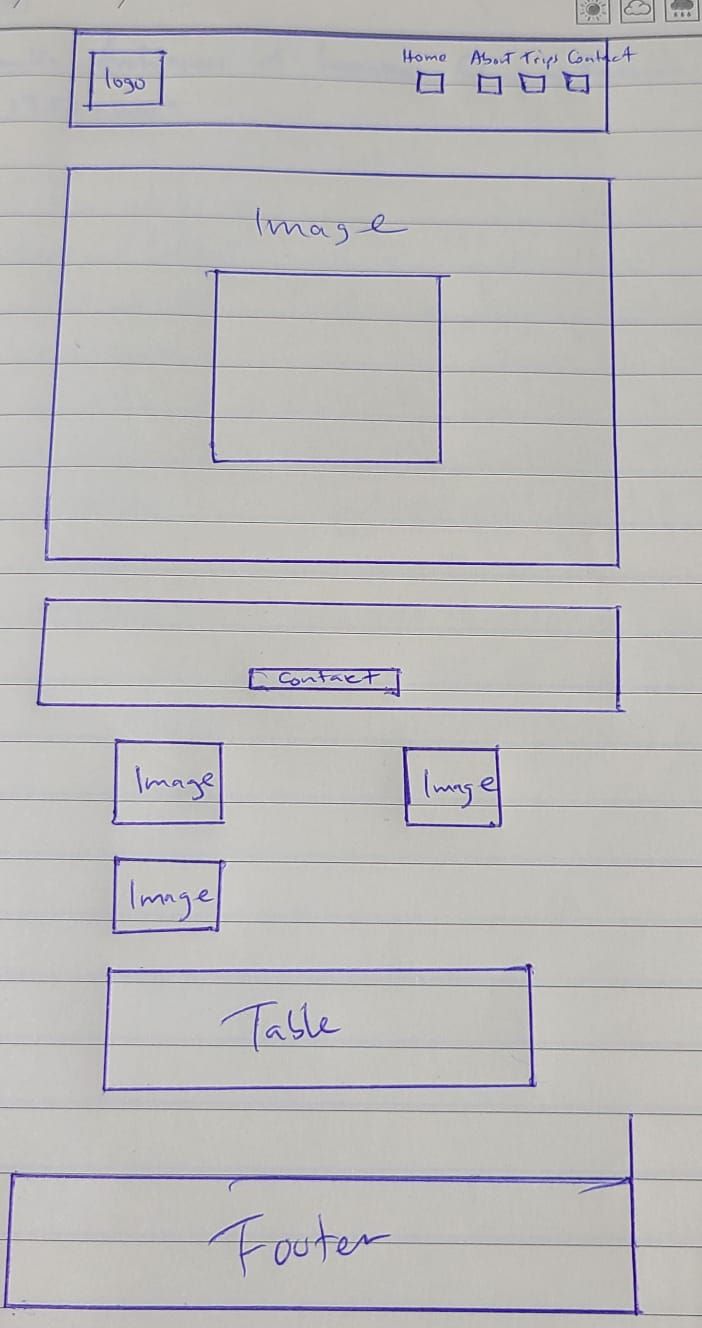 Home About Trips Contact
logo
Image
Contact
Image Image
Image
Table
Footer